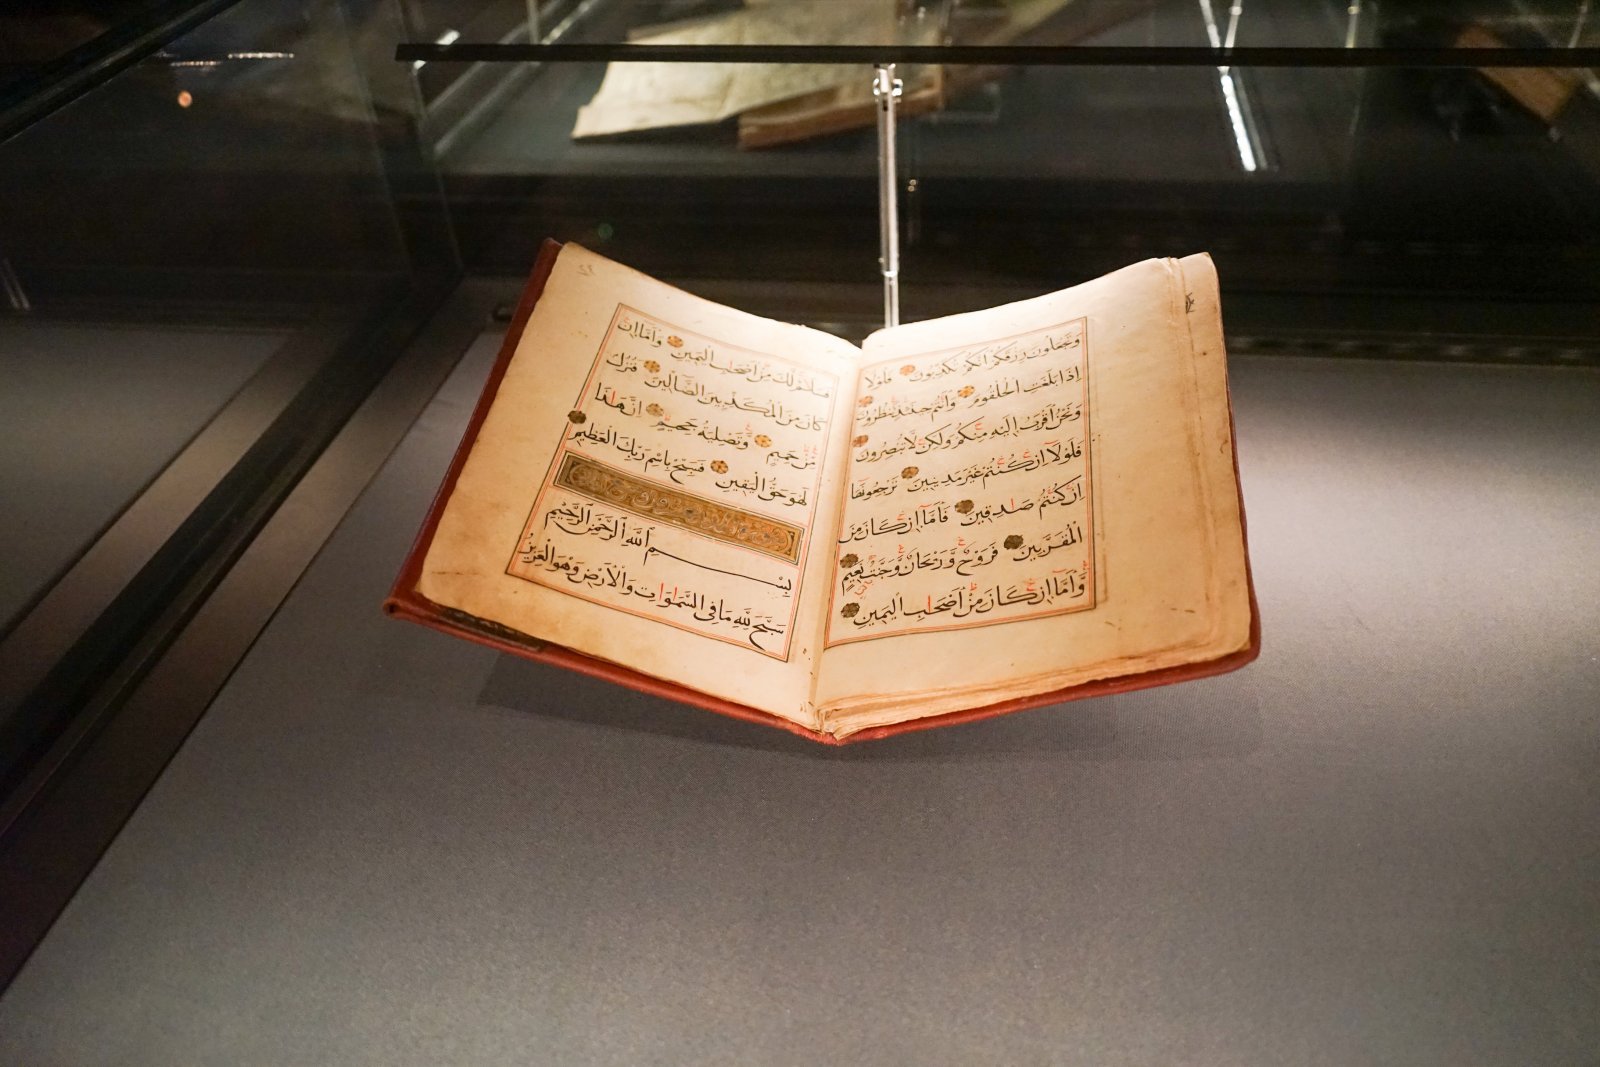 وَتَجْعَلُونَ رِزْقَكُمْ اَنَّكُمْ تُكَذِّبُونَ فَلَوْلَا
اِذَا بَلَغَتِ الْحُلْقُومَ وَاَنْتُمْ حِينَئِذٍ تَنْظُرُونَ
وَنَحْنُ اَقْرَبُ اِلَيْهِ مِنْكُمْ وَلٰكِنْ لَا تُبْصِرُونَ
فَلَوْلَا اِنْ كُنْتُمْ غَيْرَ مَدِينِينَ تَرْجِعُونَهَا
اِنْ كُنْتُمْ صَادِقِينَ فَاَمَّا اِنْ كَانَ مِنَ
الْمُقَرَّبِينَ فَرَوْحٌ وَرَيْحَانٌ وَجَنَّتُ نَعِيمٍ
وَاَمَّا اِنْ كَانَ مِنْ اَصْحَابِ الْيَمِينِ
فَسَلَامٌ لَكَ مِنْ اَصْحَابِ الْيَمِينِ وَاَمَّا اِنْ
كَانَ مِنَ الْمُكَذِّبِينَ الضَّالِّينَ فَنُزُلٌ
مِنْ حَمِيمٍ وَتَصْلِيَةُ جَحِيمٍ اِنَّ هٰذَا
لَهُوَ حَقُّ الْيَقِينِ فَسَبِّحْ بِاسْمِ رَبِّكَ الْعَظِيمِ
بِسْمِ اللّٰهِ الرَّحْمٰنِ الرَّحِيمِ
سَبَّحَ لِلّٰهِ مَا فِي السَّمٰوَاتِ وَالْاَرْضِ وَهُوَ الْعَزِيزُ